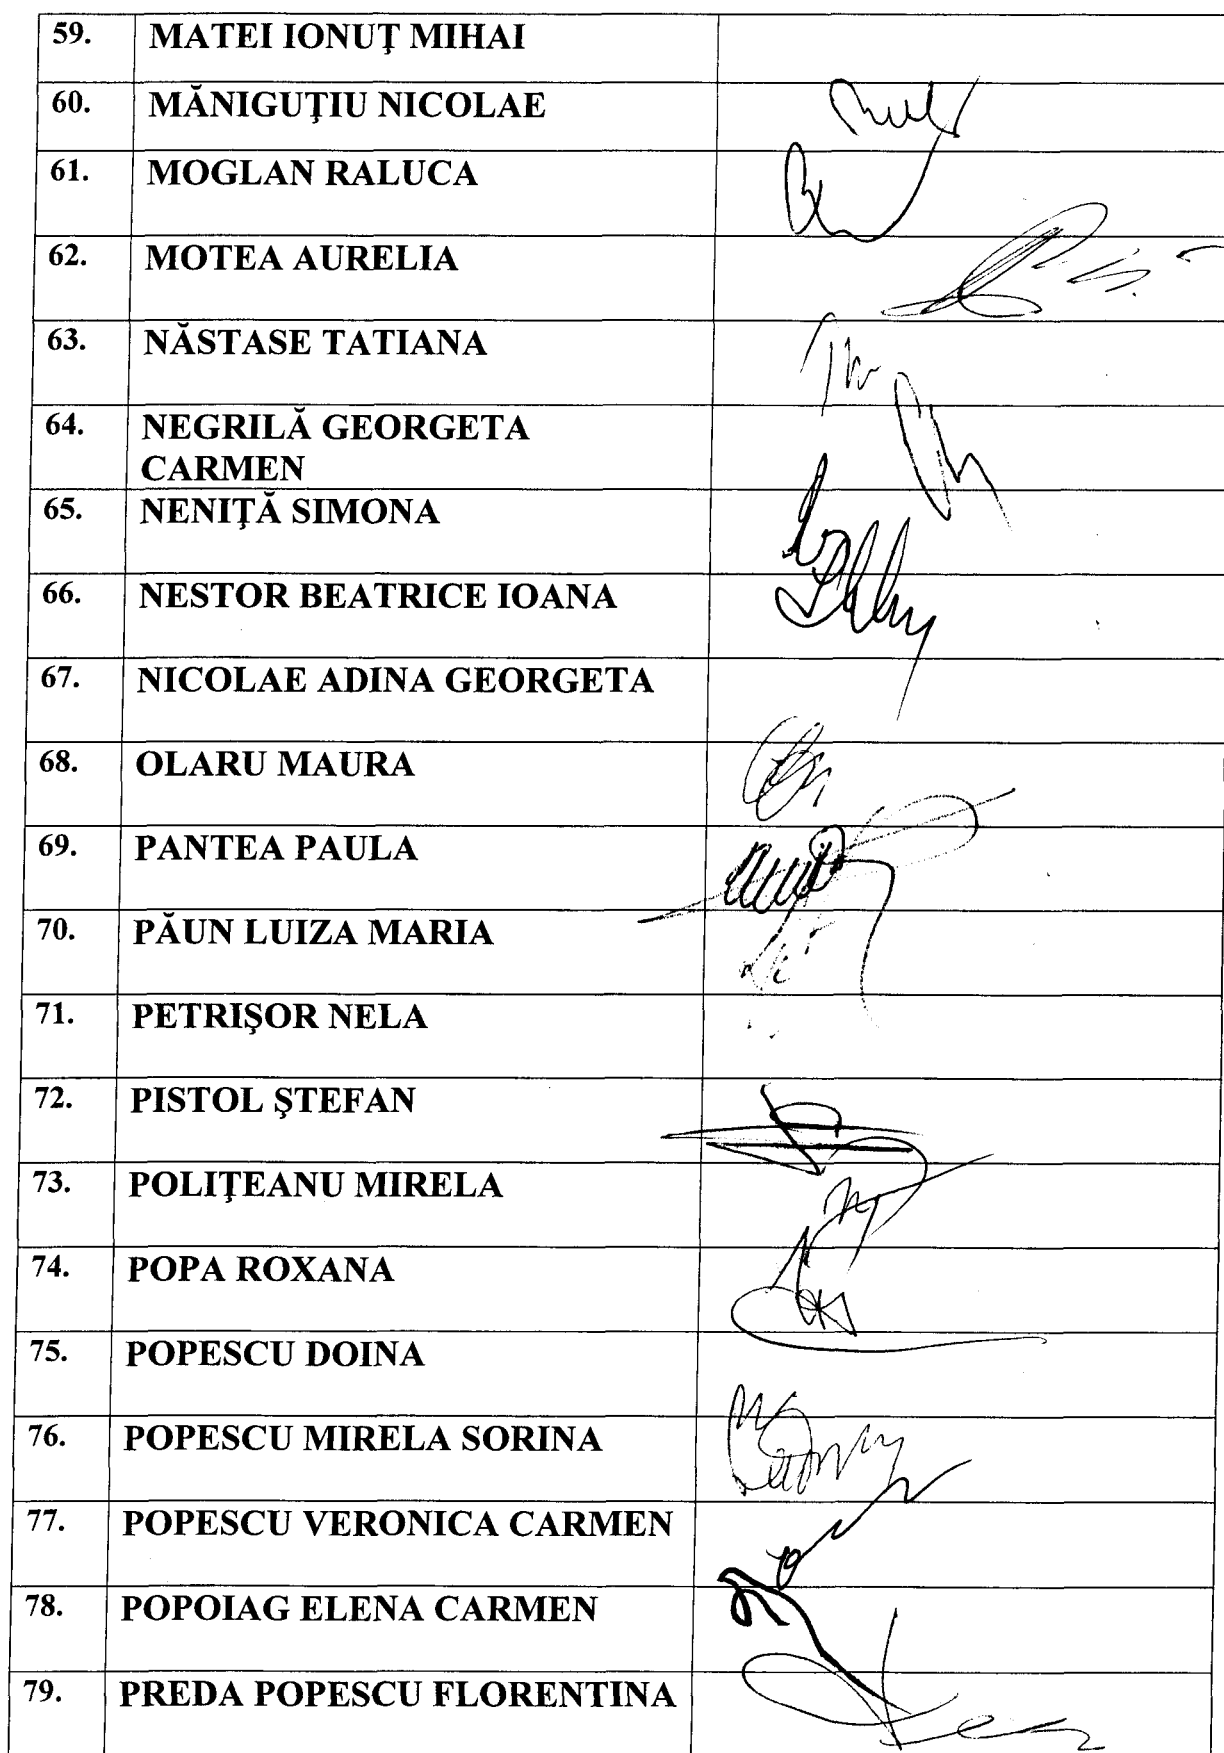 59. MATEI IONUŢ MIHAI
60. MĂNIGUŢIU NICOLAE
61. MOGLAN RALUCA
62. MOTEA AURELIA
63. NĂSTASE TATIANA
64. NEGRILĂ GEORGETA
CARMEN
65. NENIŢĂ SIMONA
66. NESTOR BEATRICE IOANA
67. NICOLAE ADINA GEORGETA
68. OLARU MAURA
69. PANTEA PAULA
70. PĂUN LUIZA MARIA
71. PETRIŞOR NELA
72. PISTOL ŞTEFAN
73. POLIŢEANU MIRELA
74. POPA ROXANA
75. POPESCU DOINA
76. POPESCU MIRELA SORINA
77. POPESCU VERONICA CARMEN
78. POPOIAG ELENA CARMEN
79. PREDA POPESCU FLORENTINA